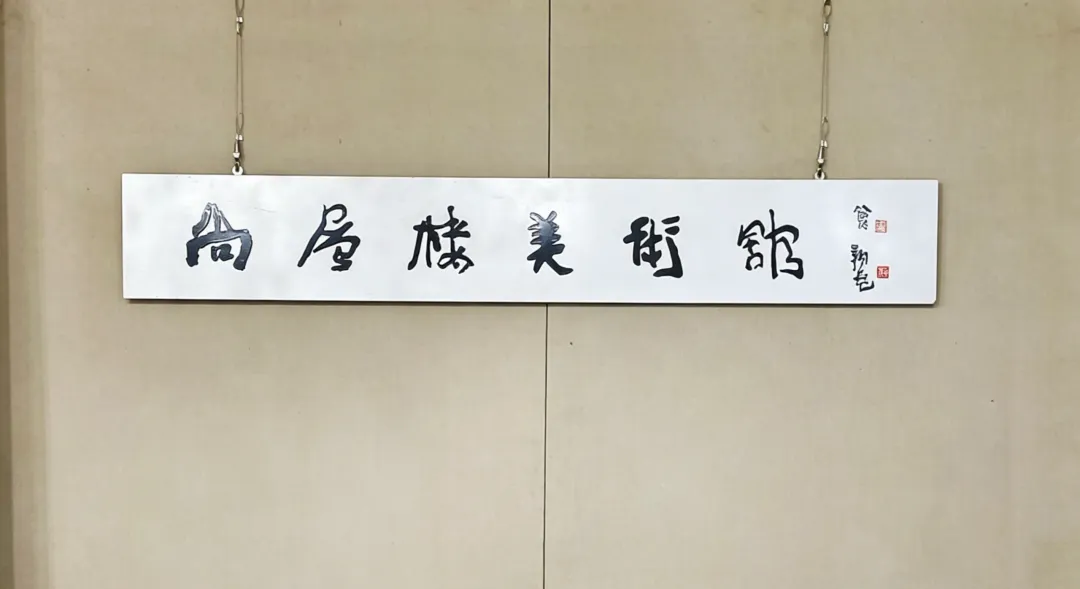 尚层楼美術館